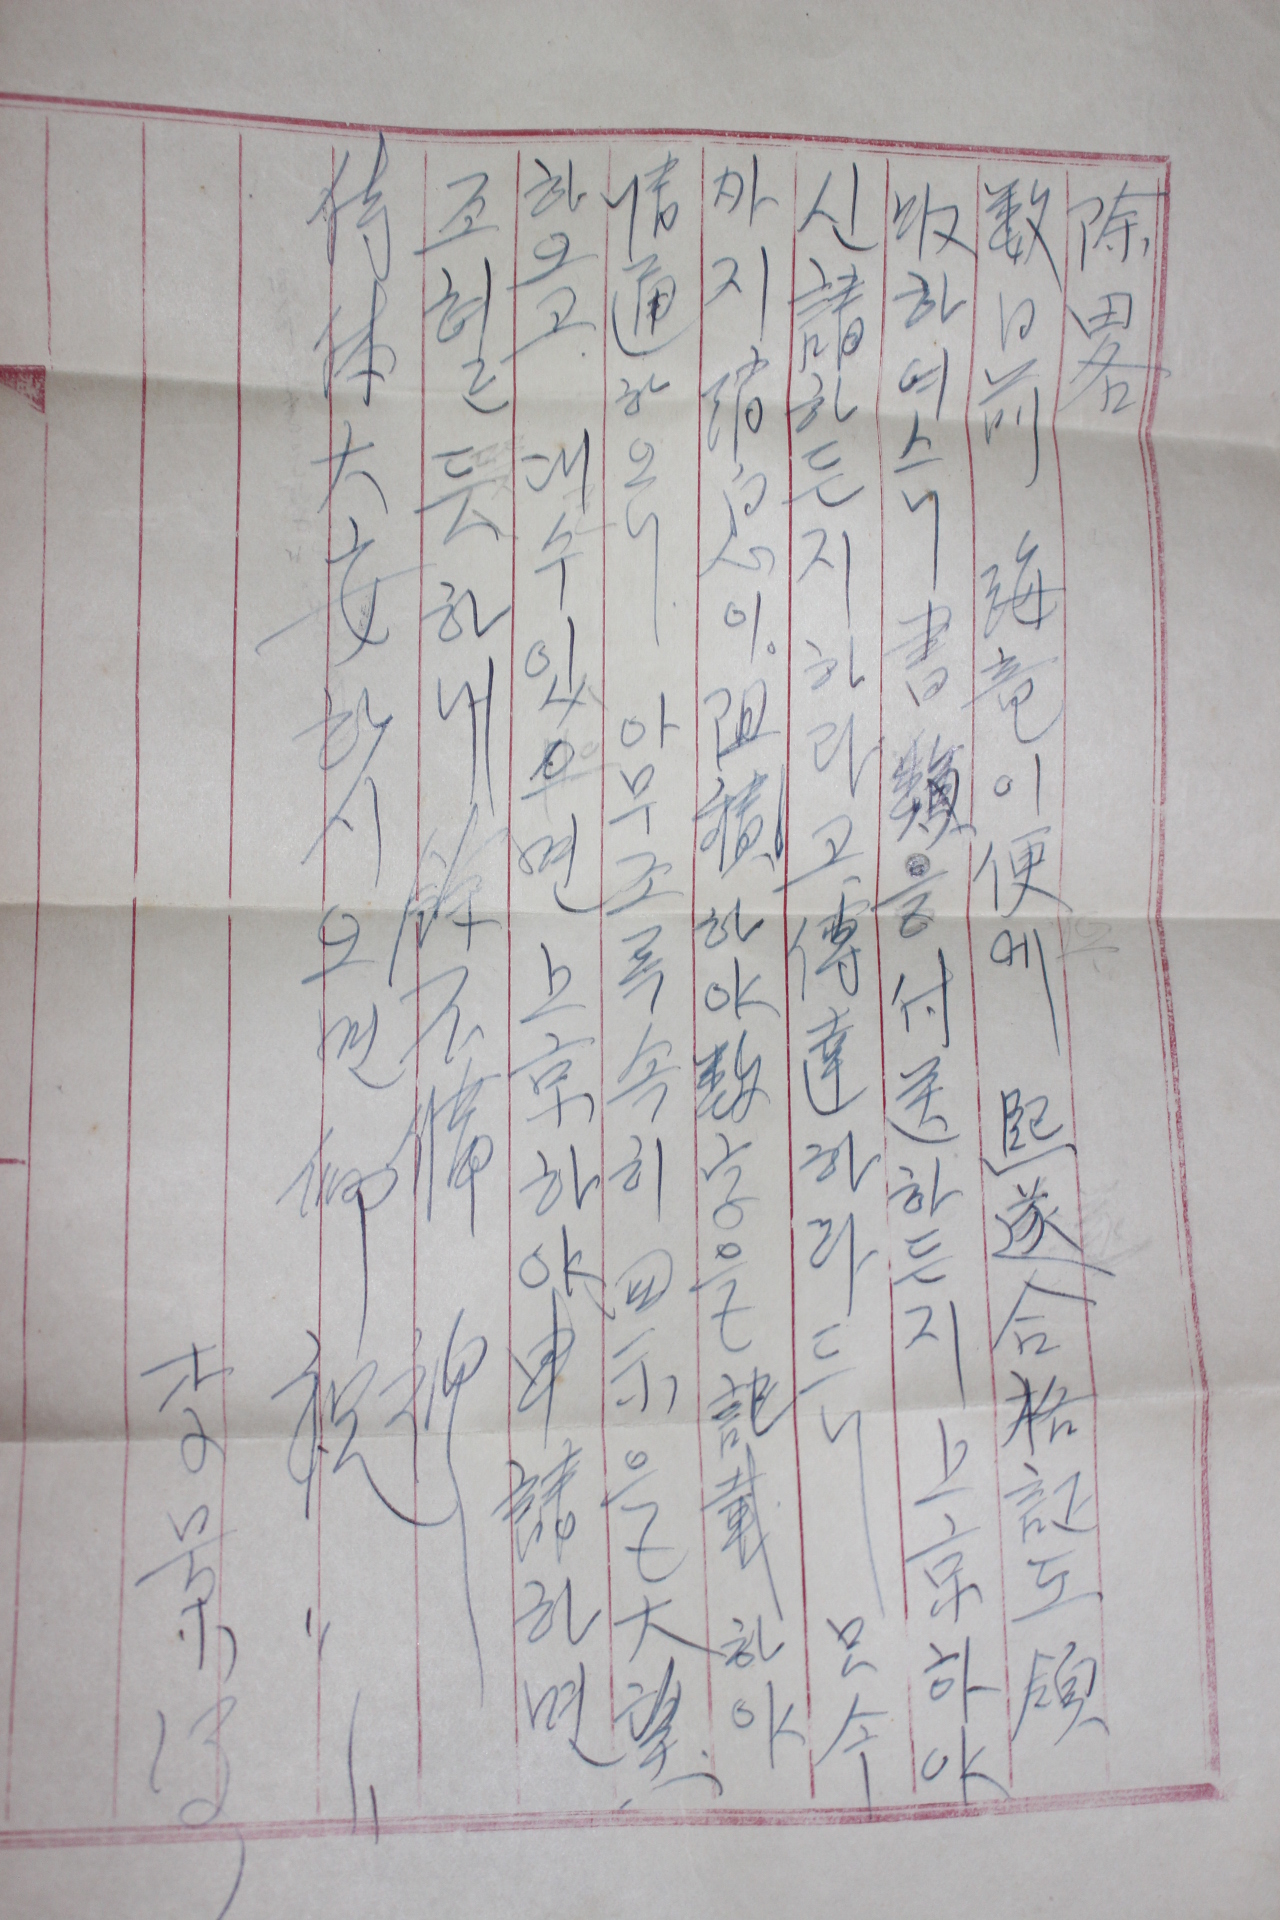 除畧
数日前 海竜이便에 熙遂合格証도領
收하여스니 書類을付送하든지 上京하야
신請하든지하라고 傳達하라드니
까지 消息이 阻積하야 数字을 記載하야
通하오니 아무조록 속히 回示을 大望
하오고 대수있으면 上京하야 申請하면
조흘 듯하내 餘不備 禮
侍体大安하시오면 仰祝〃
李景